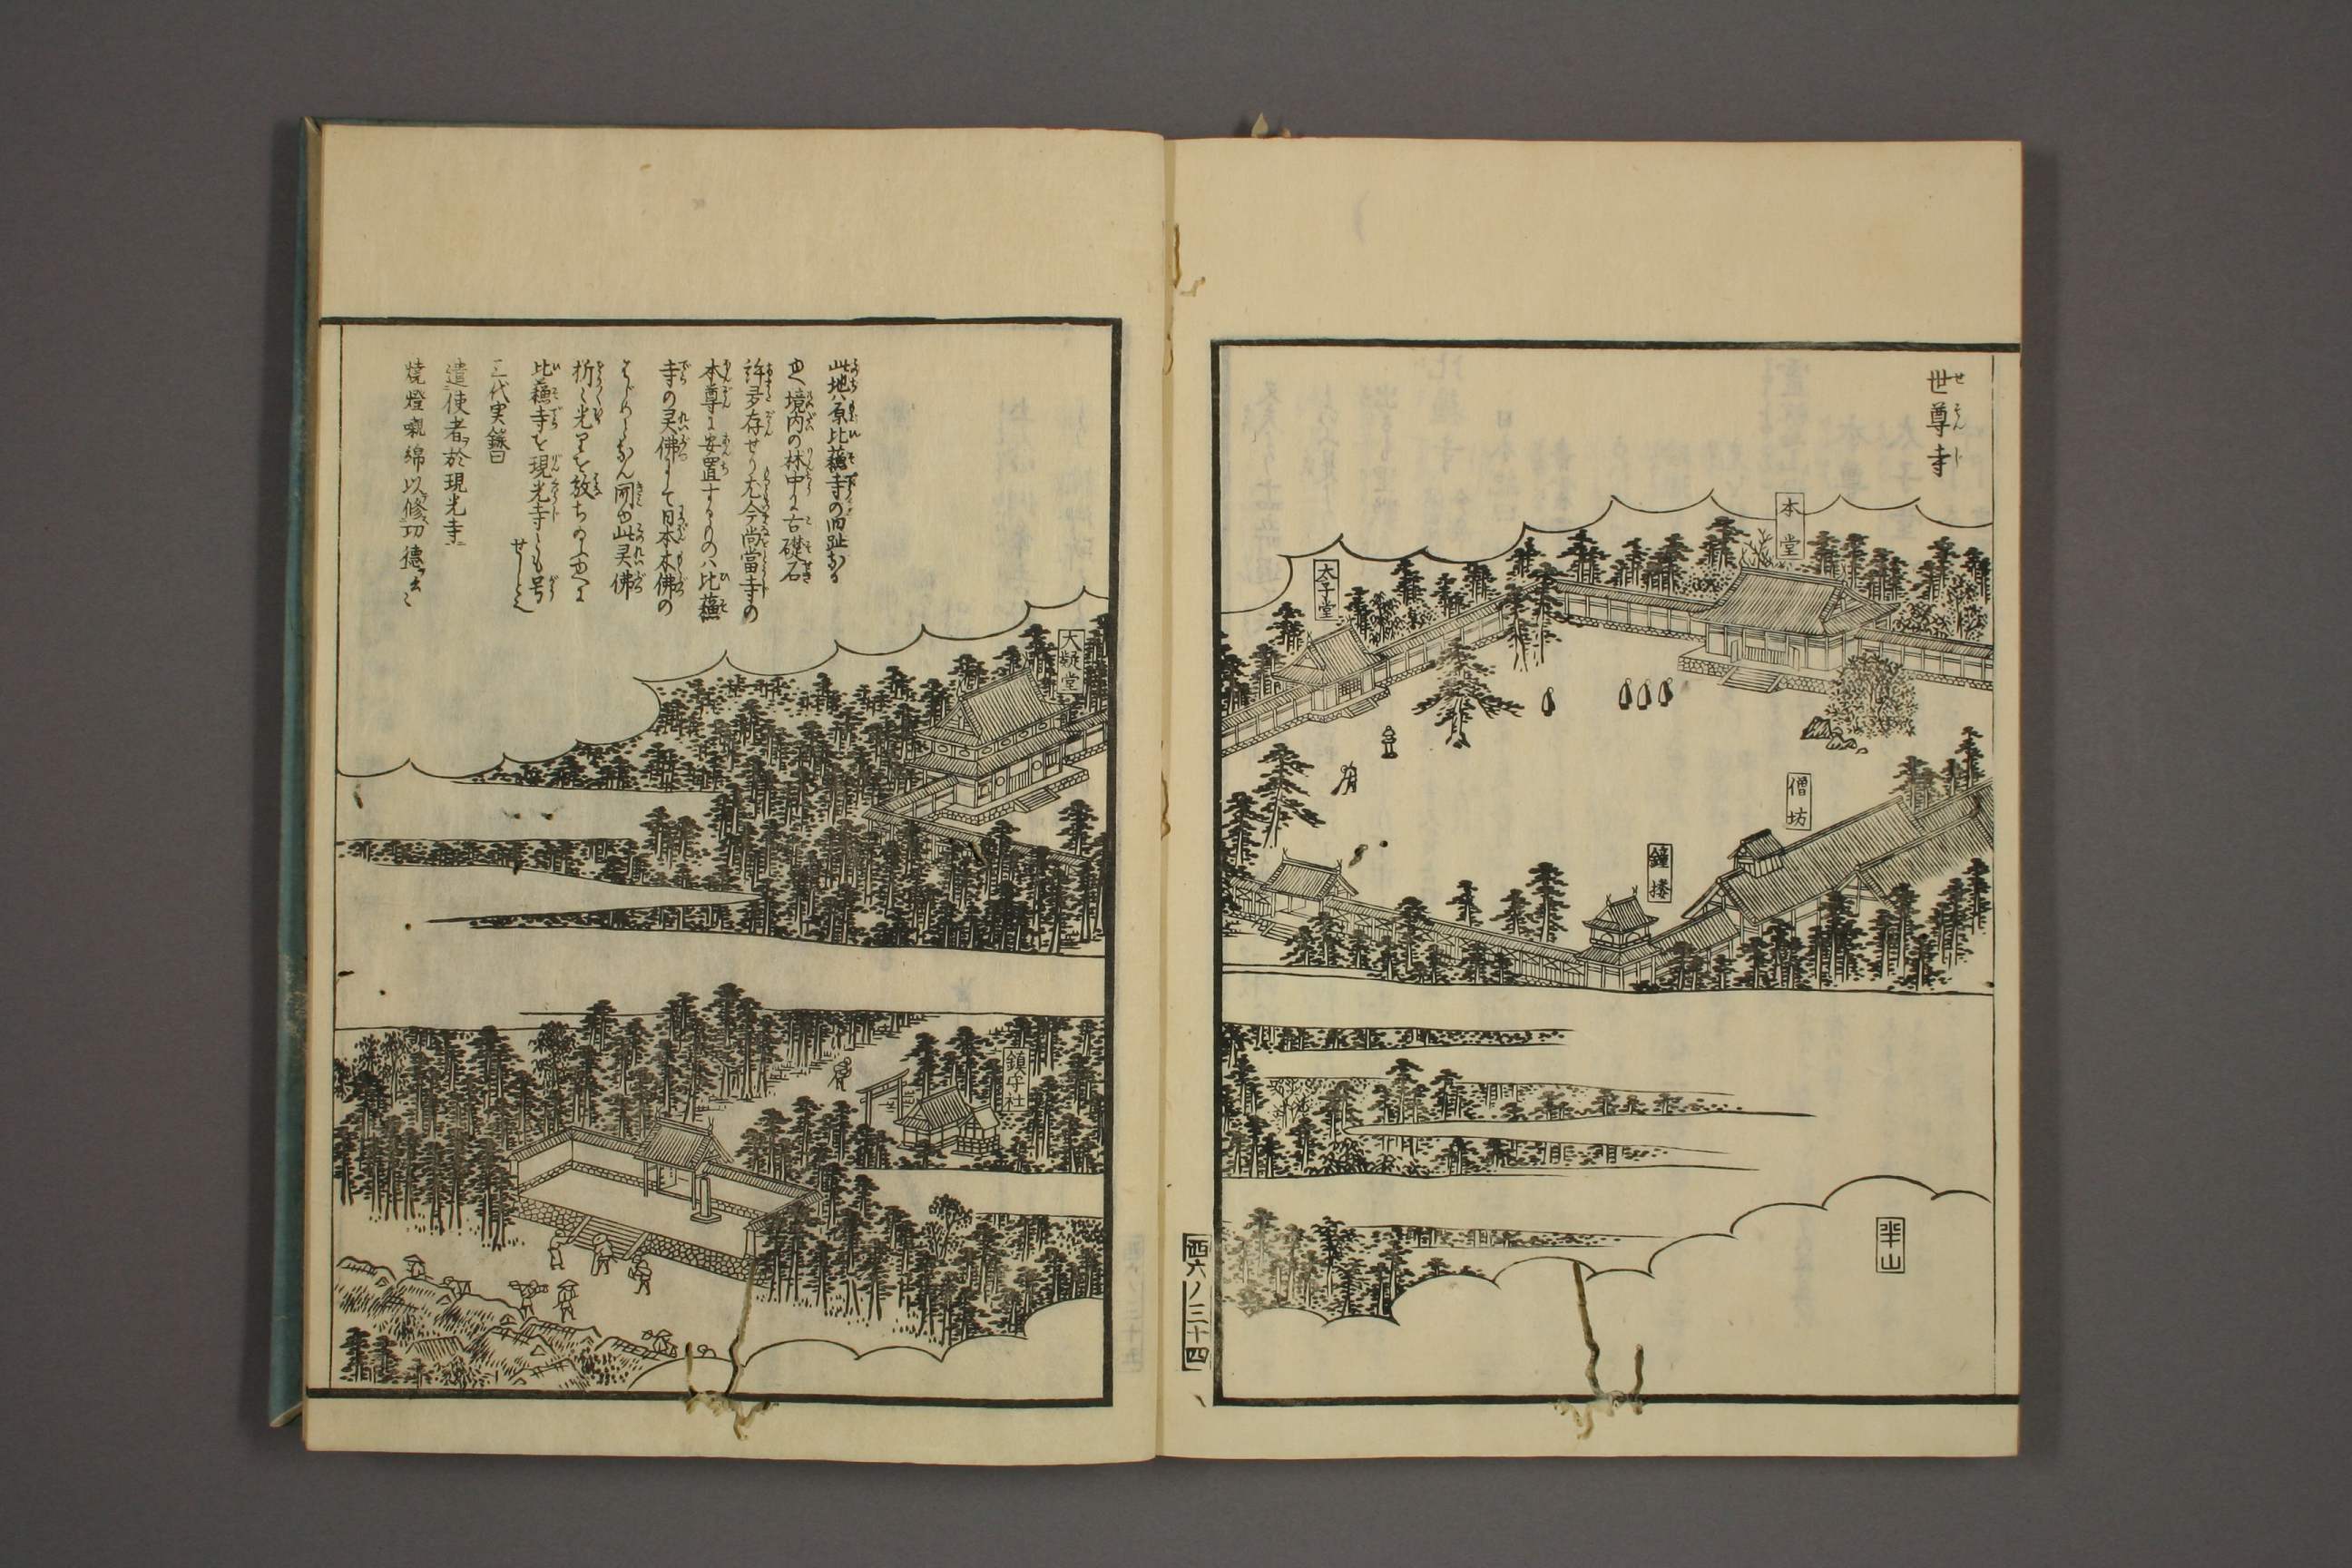 世尊寺
本堂
太子堂
僧坊
鐘楼
半山
西六ノ三十四
此地ハ原比蘓寺の旧趾なる
也境内の林中に古礎石
許多存せり尤今尚當寺の
本尊に安置するものハ比蘓
寺の灵佛にして日本木佛の
はじめとなん聞ゆ此灵佛
折々光りを放ち
比蘓寺を現光寺とも号
せしとぞ
三代実録曰
遣使者ヲ於現光寺ニ
燒燈嚫綿以修功德ヲ云々
大凝堂
鎮守社